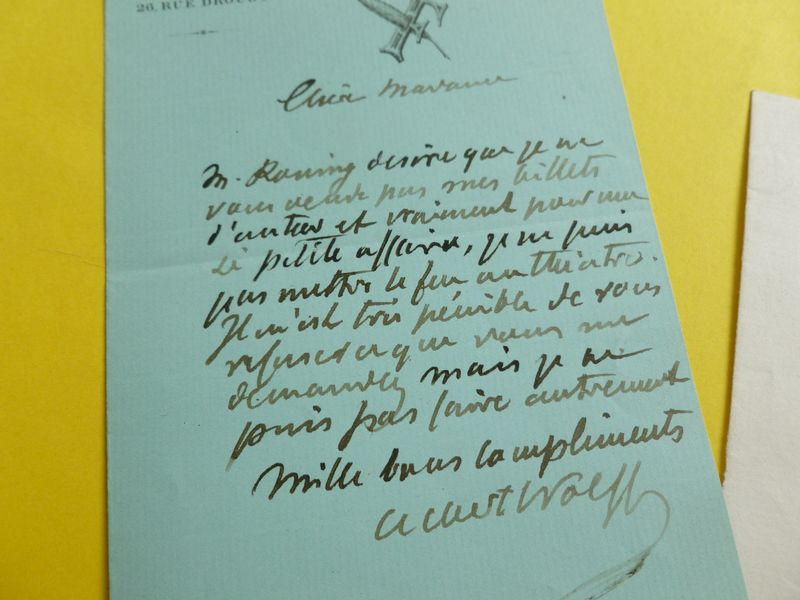 26, RUE DROUOT
F
Chère Madame
M. Koning désire que je ne
vous vende pas mes billets
d'auteur et vraiment pour une
si petite affaire, je ne puis
pas mettre le feu au théâtre.
Il m'est très pénible de vous
refuser ce que vous me
demandez mais je ne
puis pas faire autrement
Mille bons compliments
Albert Wolff